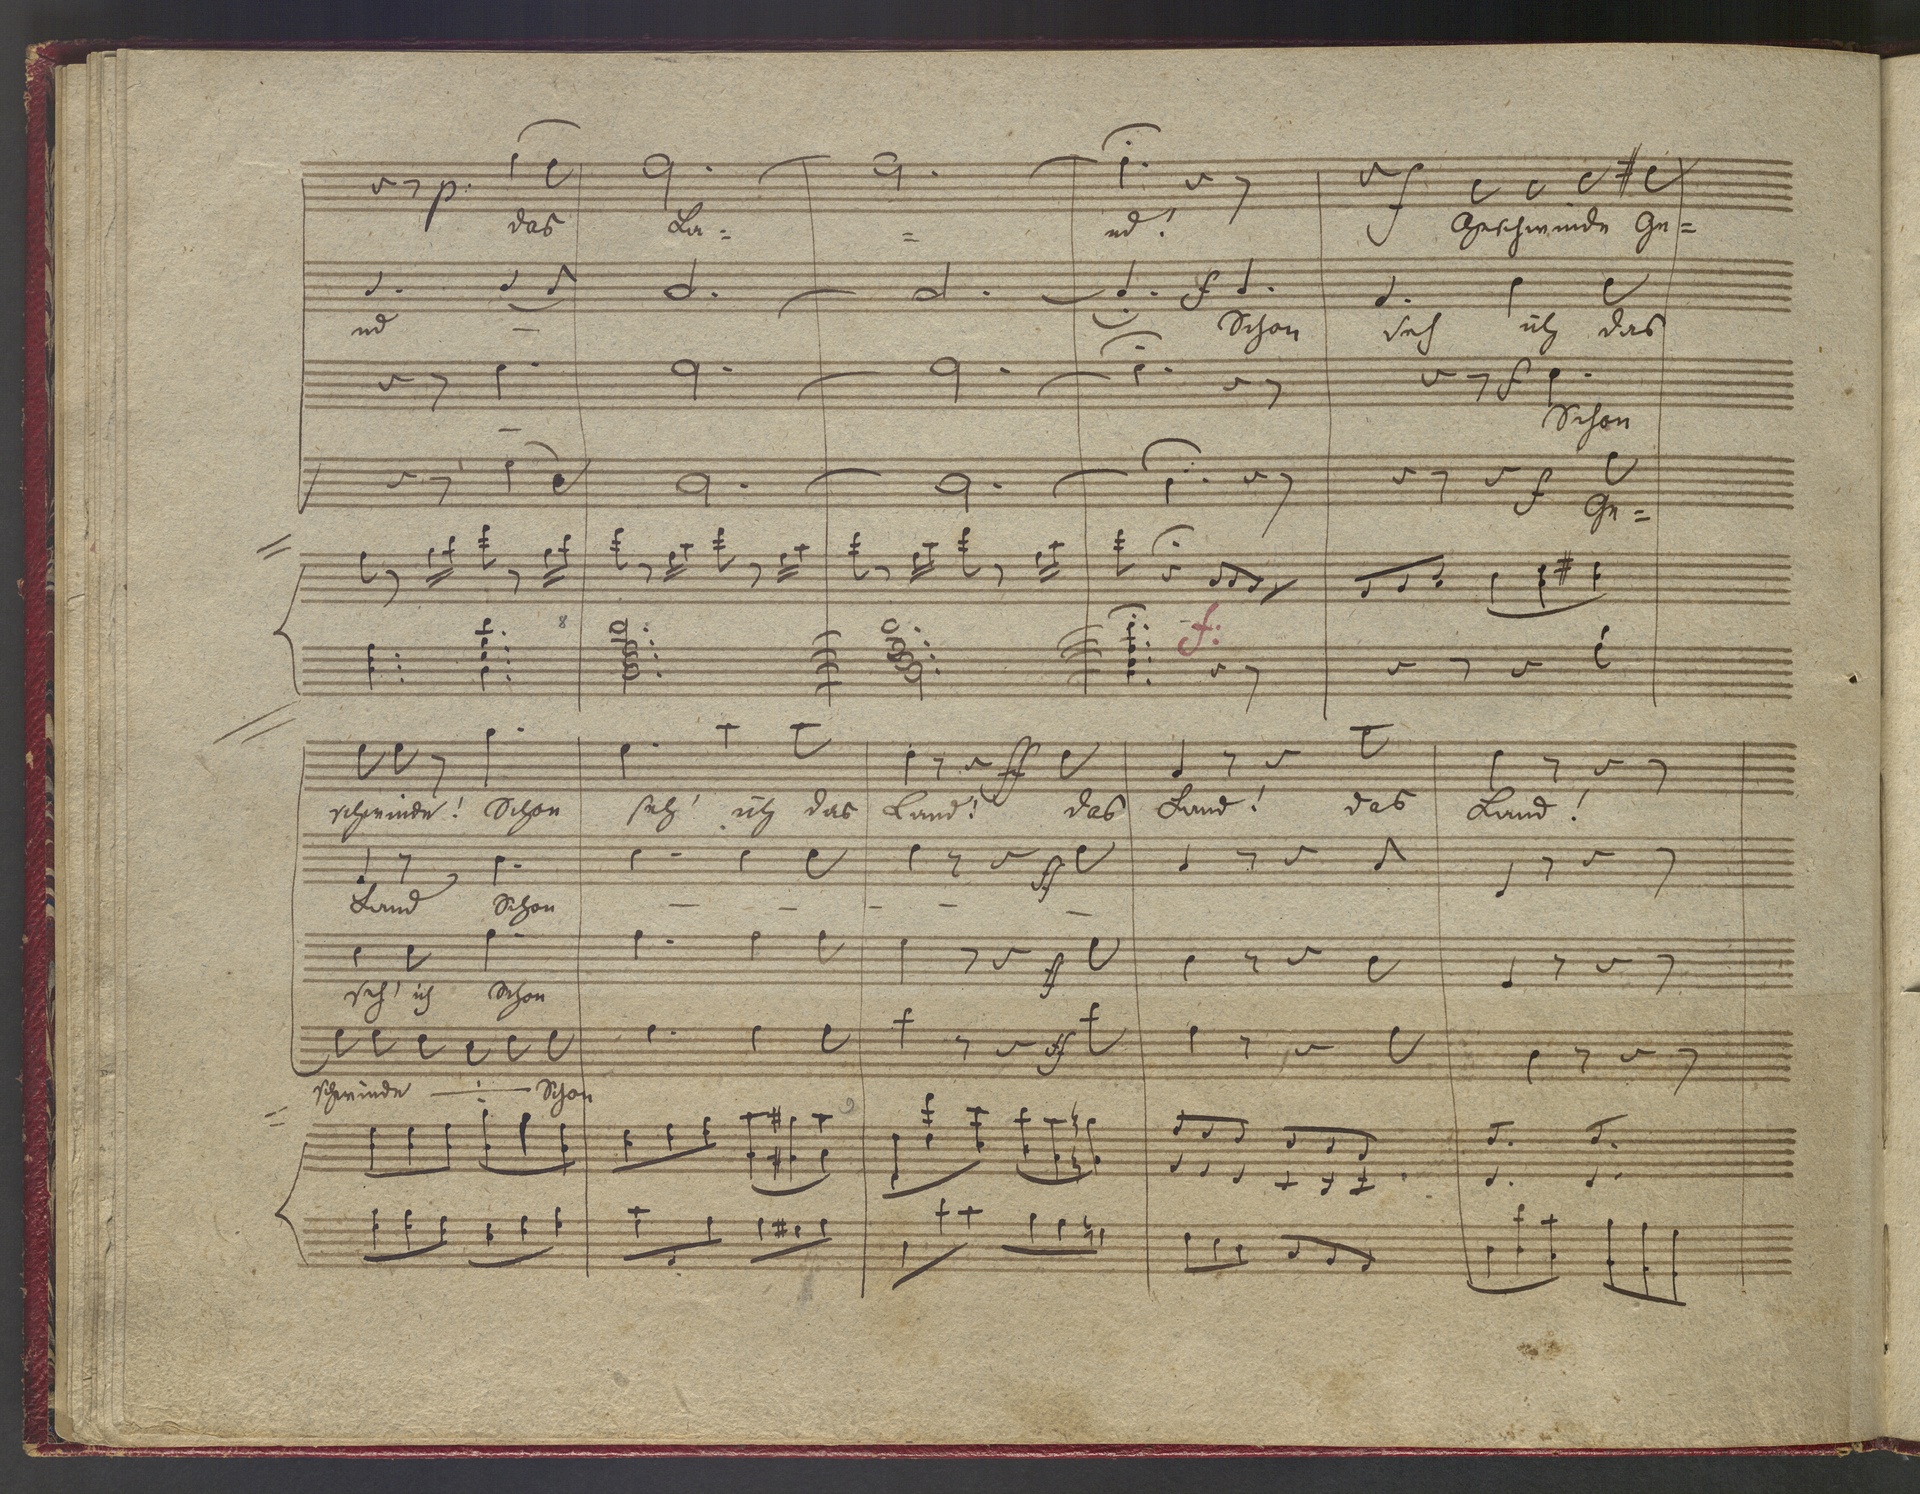 p:
das La= = nd! Geschwinde Ge=
f
nd — f Schon seh ich das
f
— Schon
f
Ge=
8
f:
ff
schwinde! Schon seh' ich das Land! das Land! das Land!
ff
Land Schon — — — — —
ff
seh' ich Schon
ff
schwinde —:— Schon